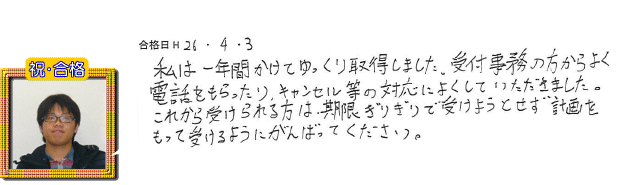 合格日 H 26 ・ 4 ・ 3
祝・合格
私は一年間かけてゆっくり取得しました。受付事務の方からよく
電話をもらったり、キャンセル等の対応によくしていただきました。
これから受けられる方は、期限ぎりぎりで受けようとせず 計画を
もって受けるようにがんばってください。